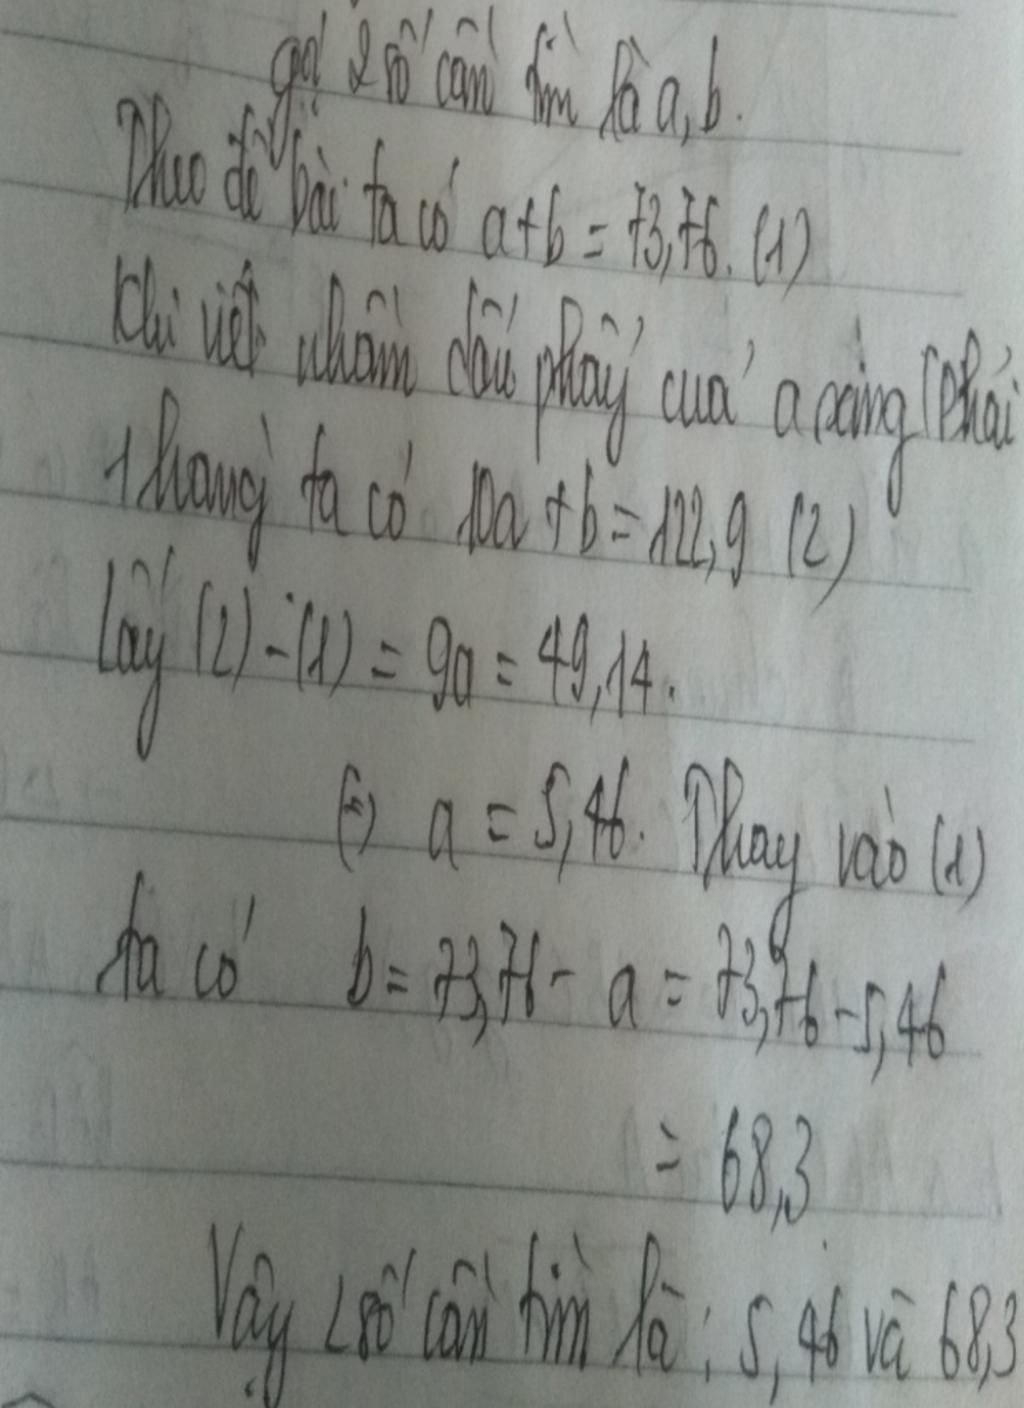 gọi 2 số cần tìm là a, b.
Theo đề bài ta có a+b = 73,76. (1)
Khi viết nhầm dấu phẩy của a sang phải
1 hàng ta có 10a + b = 122,9 (2)
Lấy (2) - (1) = 9a = 49,14.
(=) a = 5,46. Thay vào (1)
ta có b = 73,76 - a = 73,76 - 5,46
= 68,3
Vậy 2 số cần tìm là: 5,46 và 68,3